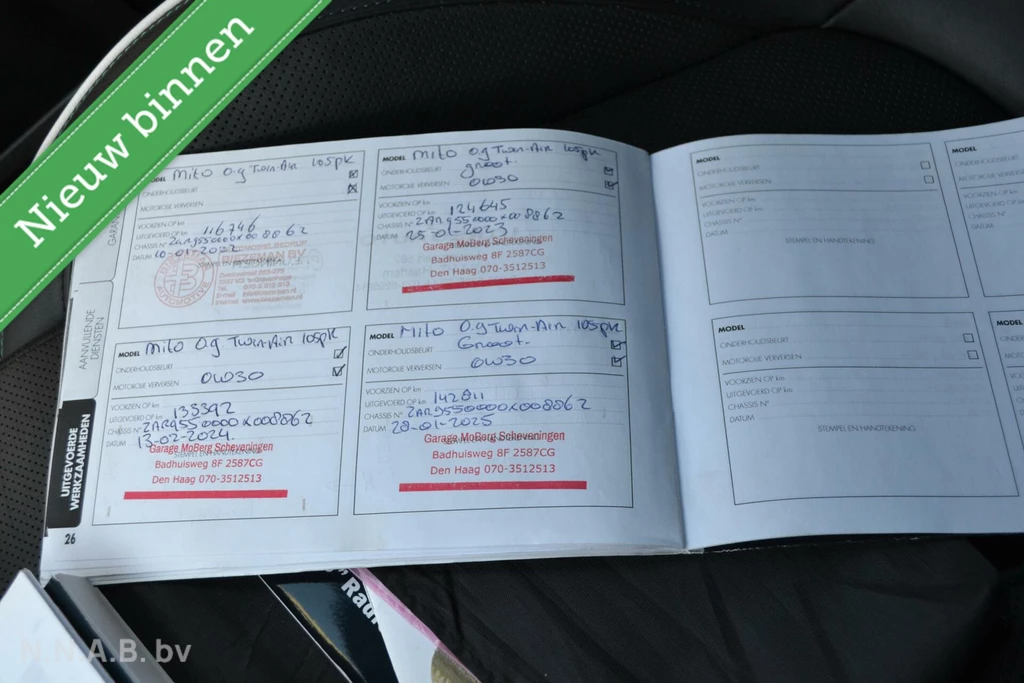 Nieuw binnen
MODEL Mito 0.9 Twin-Air 105pk
ONDERHOUDSBEURT
MOTOROLIE VERVERSEN
VOORZIEN OP km
UITGEVOERD OP km 116746
CHASSIS N° ZAR9550000X008862
DATUM 10-01-2022
BIEZEMAN BV
AUTOMOTIVE
MODEL Mito 0.9 Twin-Air 105pk
groot.
ONDERHOUDSBEURT
MOTOROLIE VERVERSEN 0W30
VOORZIEN OP km
UITGEVOERD OP km 124645
CHASSIS N° ZAR9550000X008862
DATUM 25-01-2023
Garage MoBerg Scheveningen
Badhuisweg 8F 2587CG
Den Haag 070-3512513
MODEL Mito 0.9 Twin-Air 105pk
ONDERHOUDSBEURT
MOTOROLIE VERVERSEN 0W30
VOORZIEN OP km
UITGEVOERD OP km 135392
CHASSIS N° ZAR9550000X008862
DATUM 13-02-2024.
STEMPEL EN HANDTEKENING
Garage MoBerg Scheveningen
Badhuisweg 8F 2587CG
Den Haag 070-3512513
MODEL Mito 0.9 Twin-Air 105pk
Groot.
ONDERHOUDSBEURT
MOTOROLIE VERVERSEN 0W30
VOORZIEN OP km
UITGEVOERD OP km 142811
CHASSIS N° ZAR9550000X008862
DATUM 28-01-2025
Garage MoBerg Scheveningen
Badhuisweg 8F 2587CG
Den Haag 070-3512513
AANVULLENDE
DIENSTEN
UITGEVOERDE
WERKZAAMHEDEN
26
MODEL
ONDERHOUDSBEURT
MOTOROLIE VERVERSEN
VOORZIEN OP km
UITGEVOERD OP km
CHASSIS N°
DATUM
STEMPEL EN HANDTEKENING
MODEL
ONDERHOUDSBEURT
MOTOROLIE VERVERSEN
VOORZIEN OP km
UITGEVOERD OP km
CHASSIS N°
DATUM
STEMPEL EN HANDTEKENING
MODEL
MODEL
N.N.A.B. bv